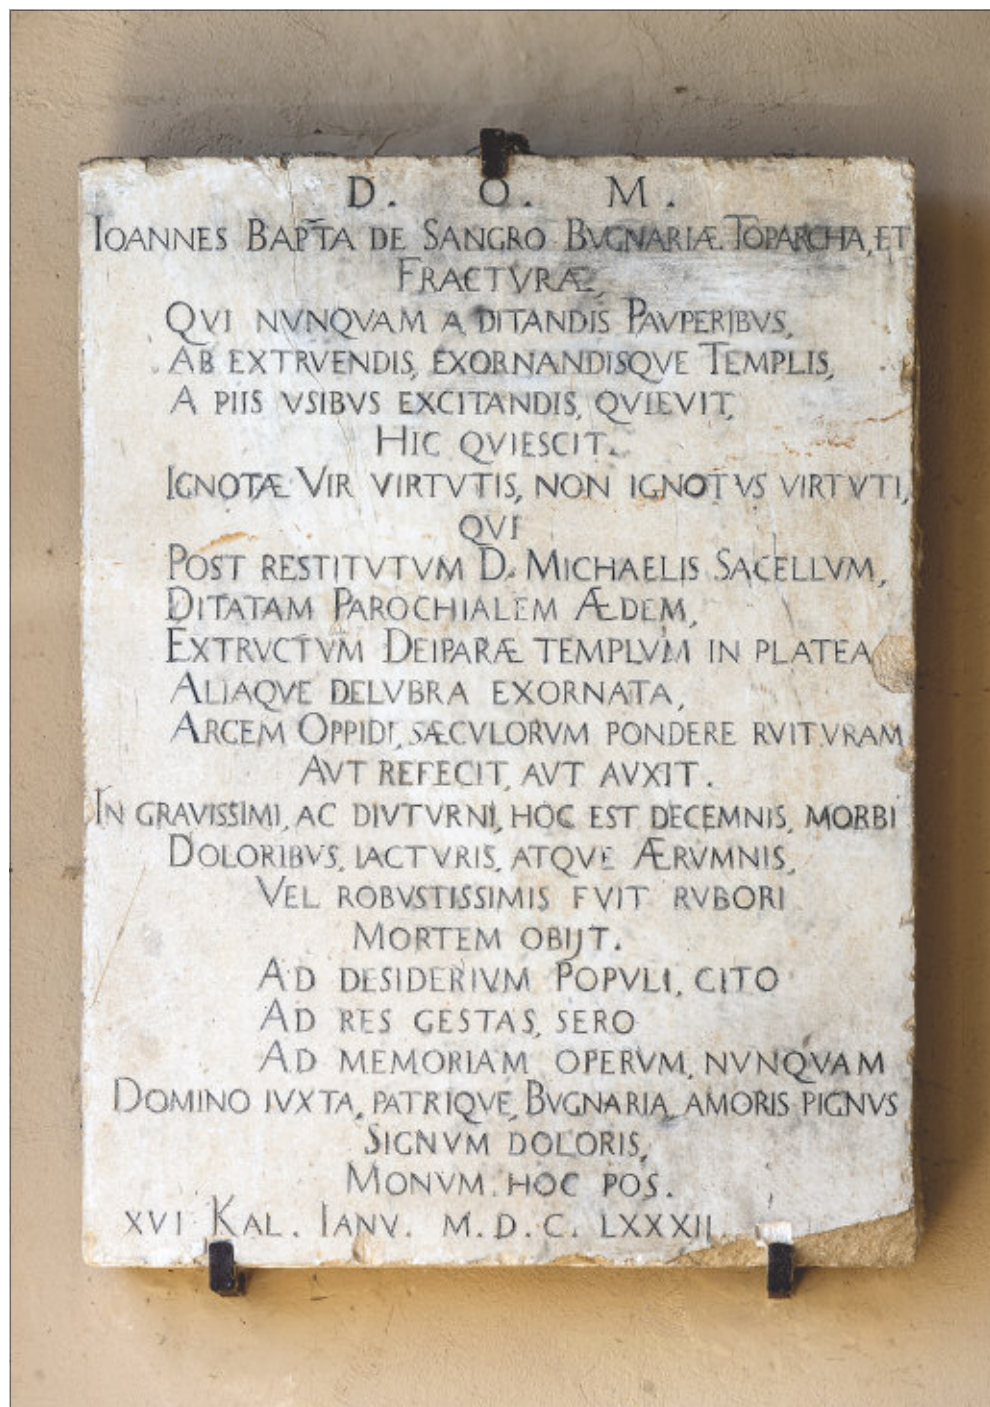 D. O. M.
IOANNES BAPT̄A DE SANGRO BVGNARIÆ TOPARCHA, ET
FRACTVRÆ,
QVI NVNQVAM A DITANDIS PAVPERIBVS,
AB EXTRVENDIS, EXORNANDISQVE TEMPLIS,
A PIIS VSIBVS EXCITANDIS, QVIEVIT,
HIC QVIESCIT.
IGNOTÆ VIR VIRTVTIS, NON IGNOTVS VIRTVTI,
QVI
POST RESTITVTVM D. MICHAELIS SACELLVM,
DITATAM PAROCHIALEM ÆDEM,
EXTRVCTVM DEIPARÆ TEMPLVM IN PLATEA
ALIAQVE DELVBRA EXORNATA,
ARCEM OPPIDI, SÆCVLORVM PONDERE RVITVRAM
AVT REFECIT, AVT AVXIT.
IN GRAVISSIMI, AC DIVTVRNI, HOC EST DECEMNIS, MORBI
DOLORIBVS, IACTVRIS, ATQVE ÆRVMNIS,
VEL ROBVSTISSIMIS FVIT RVBORI
MORTEM OBIJT.
AD DESIDERIVM POPVLI, CITO
AD RES GESTAS, SERO
AD MEMORIAM OPERVM, NVNQVAM
DOMINO IVXTA, PATRIQVE, BVGNARIA, AMORIS PIGNVS
SIGNVM DOLORIS,
MONVM. HOC POS.
XVI KAL. IANV. M. D. C. LXXXII.